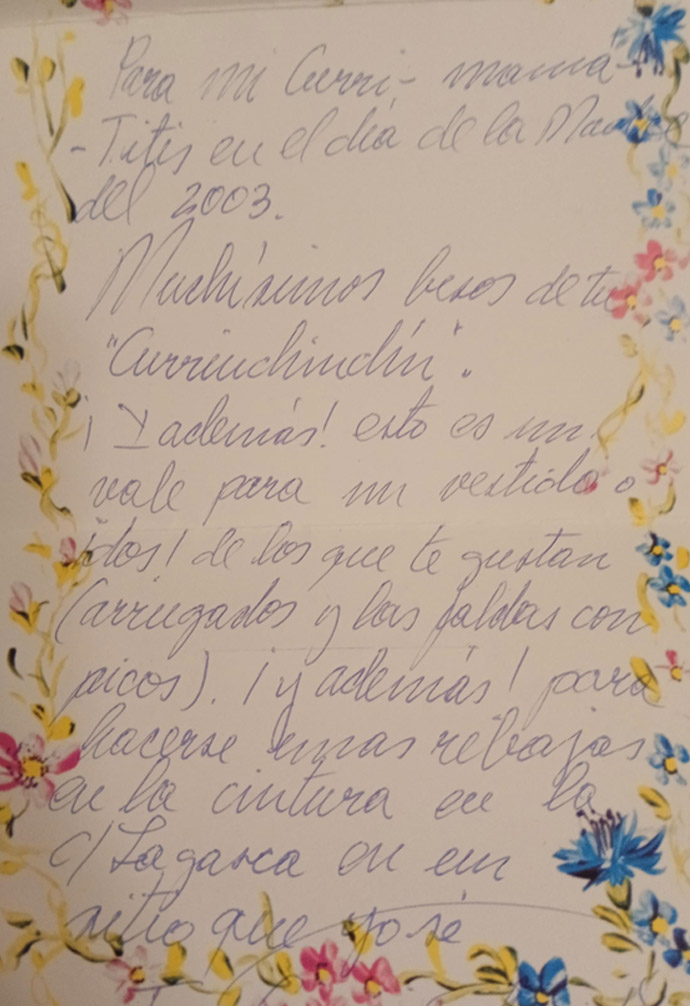 Para mi Curri-mamá-
-Titis en el día de la Madre
del 2003.
Muchísimos besos de tu
"Currinchinchín".
¡Y además! esto es un
vale para un vestido o
¡dos! de los que te gustan
(arrugados y las faldas con
picos). ¡y además! para
hacerse unas rebajas
en la cintura en la
C/ Lagasca en un
sitio que yo sé